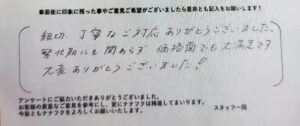 着装後に印象に残った事やご意見ご希望がございましたら是非とも記入をお願いします!
親切、丁寧なご対応ありがとうございました。
繁忙期にも関わらず、価格面でも大満足です
大変ありがとうございました!
アンケートにご協力いただきありがとうございました。
お客様の貴重なご意見を参考にし、更にナナフクは精進してまいります。
今後ともナナフクをよろしくお願いいたします。 スタッフ一同